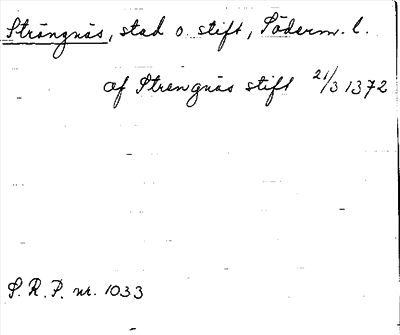 Strängnäs, stad o. stift, Söderm. l.
af Strengnäs stift 21/3 1372
S.R.P. nr. 1033